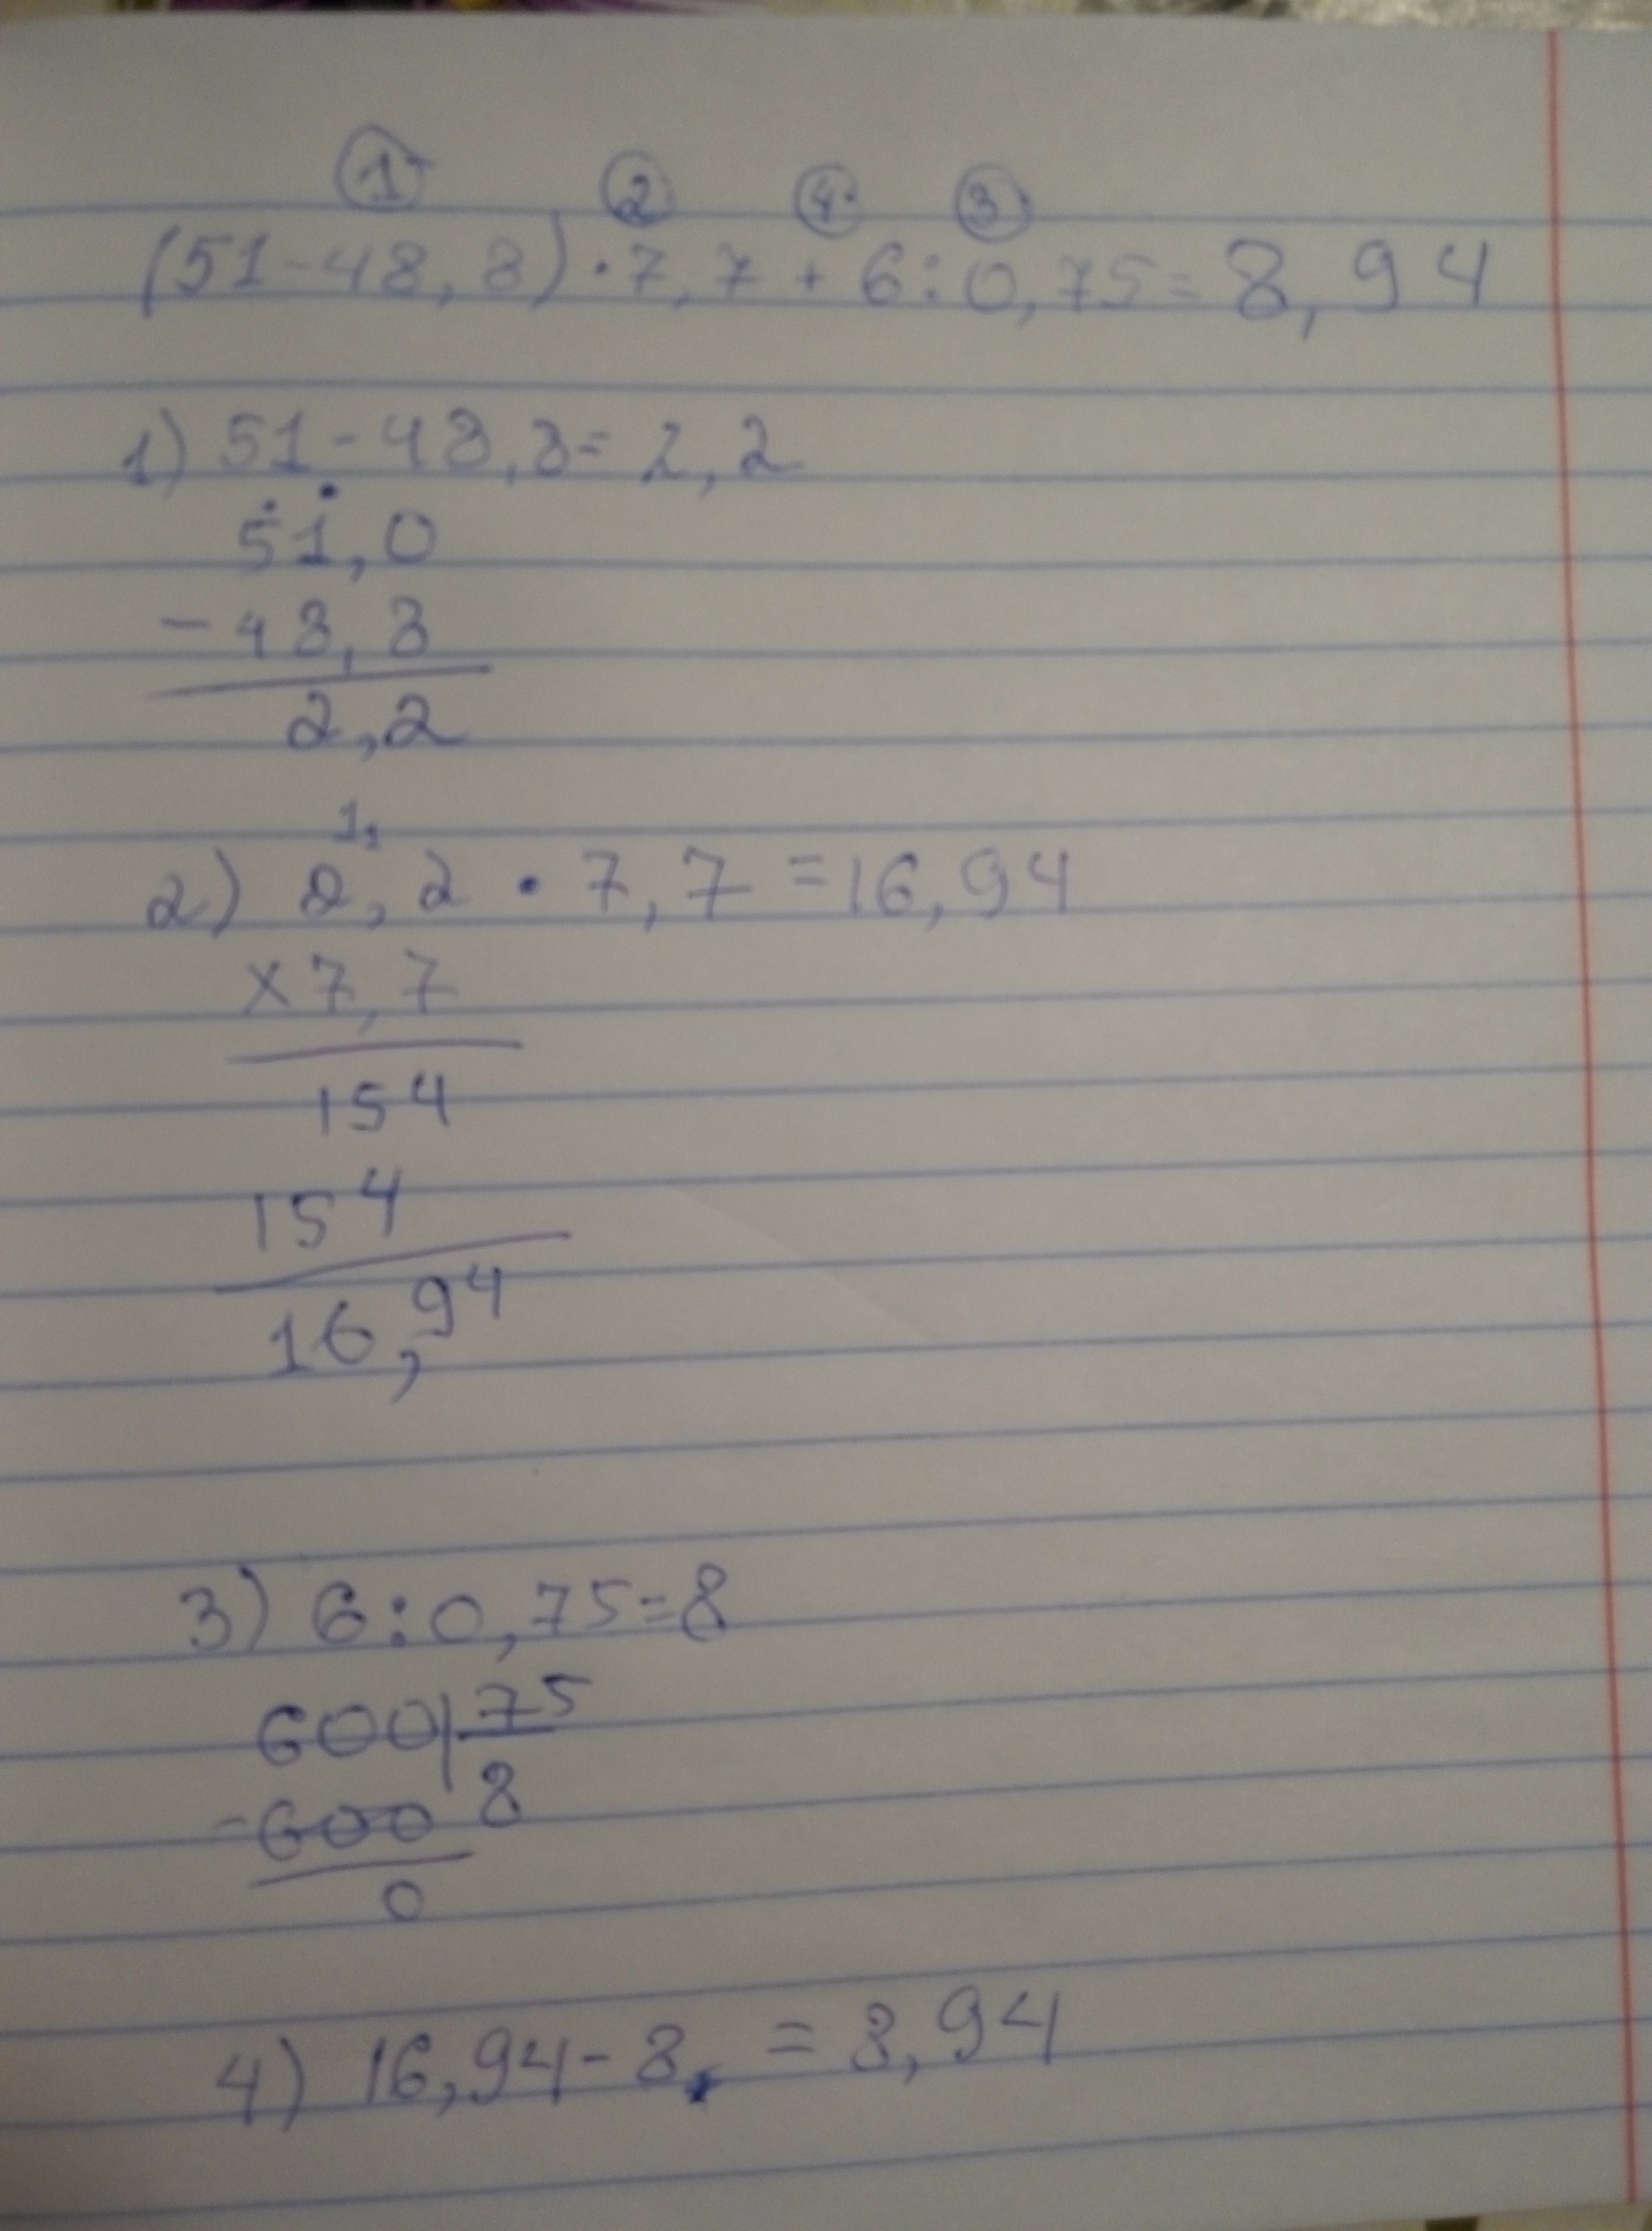 1 2 4 3
(51-48,8)·7,7+6:0,75=8,94
1) 51-48,8=2,2
51,0
-48,8
2,2
1,
2) 2,2·7,7=16,94
×7,7
154
154
16,94
3) 6:0,75=8
600|75
-600 8
0
4) 16,94-8=8,94